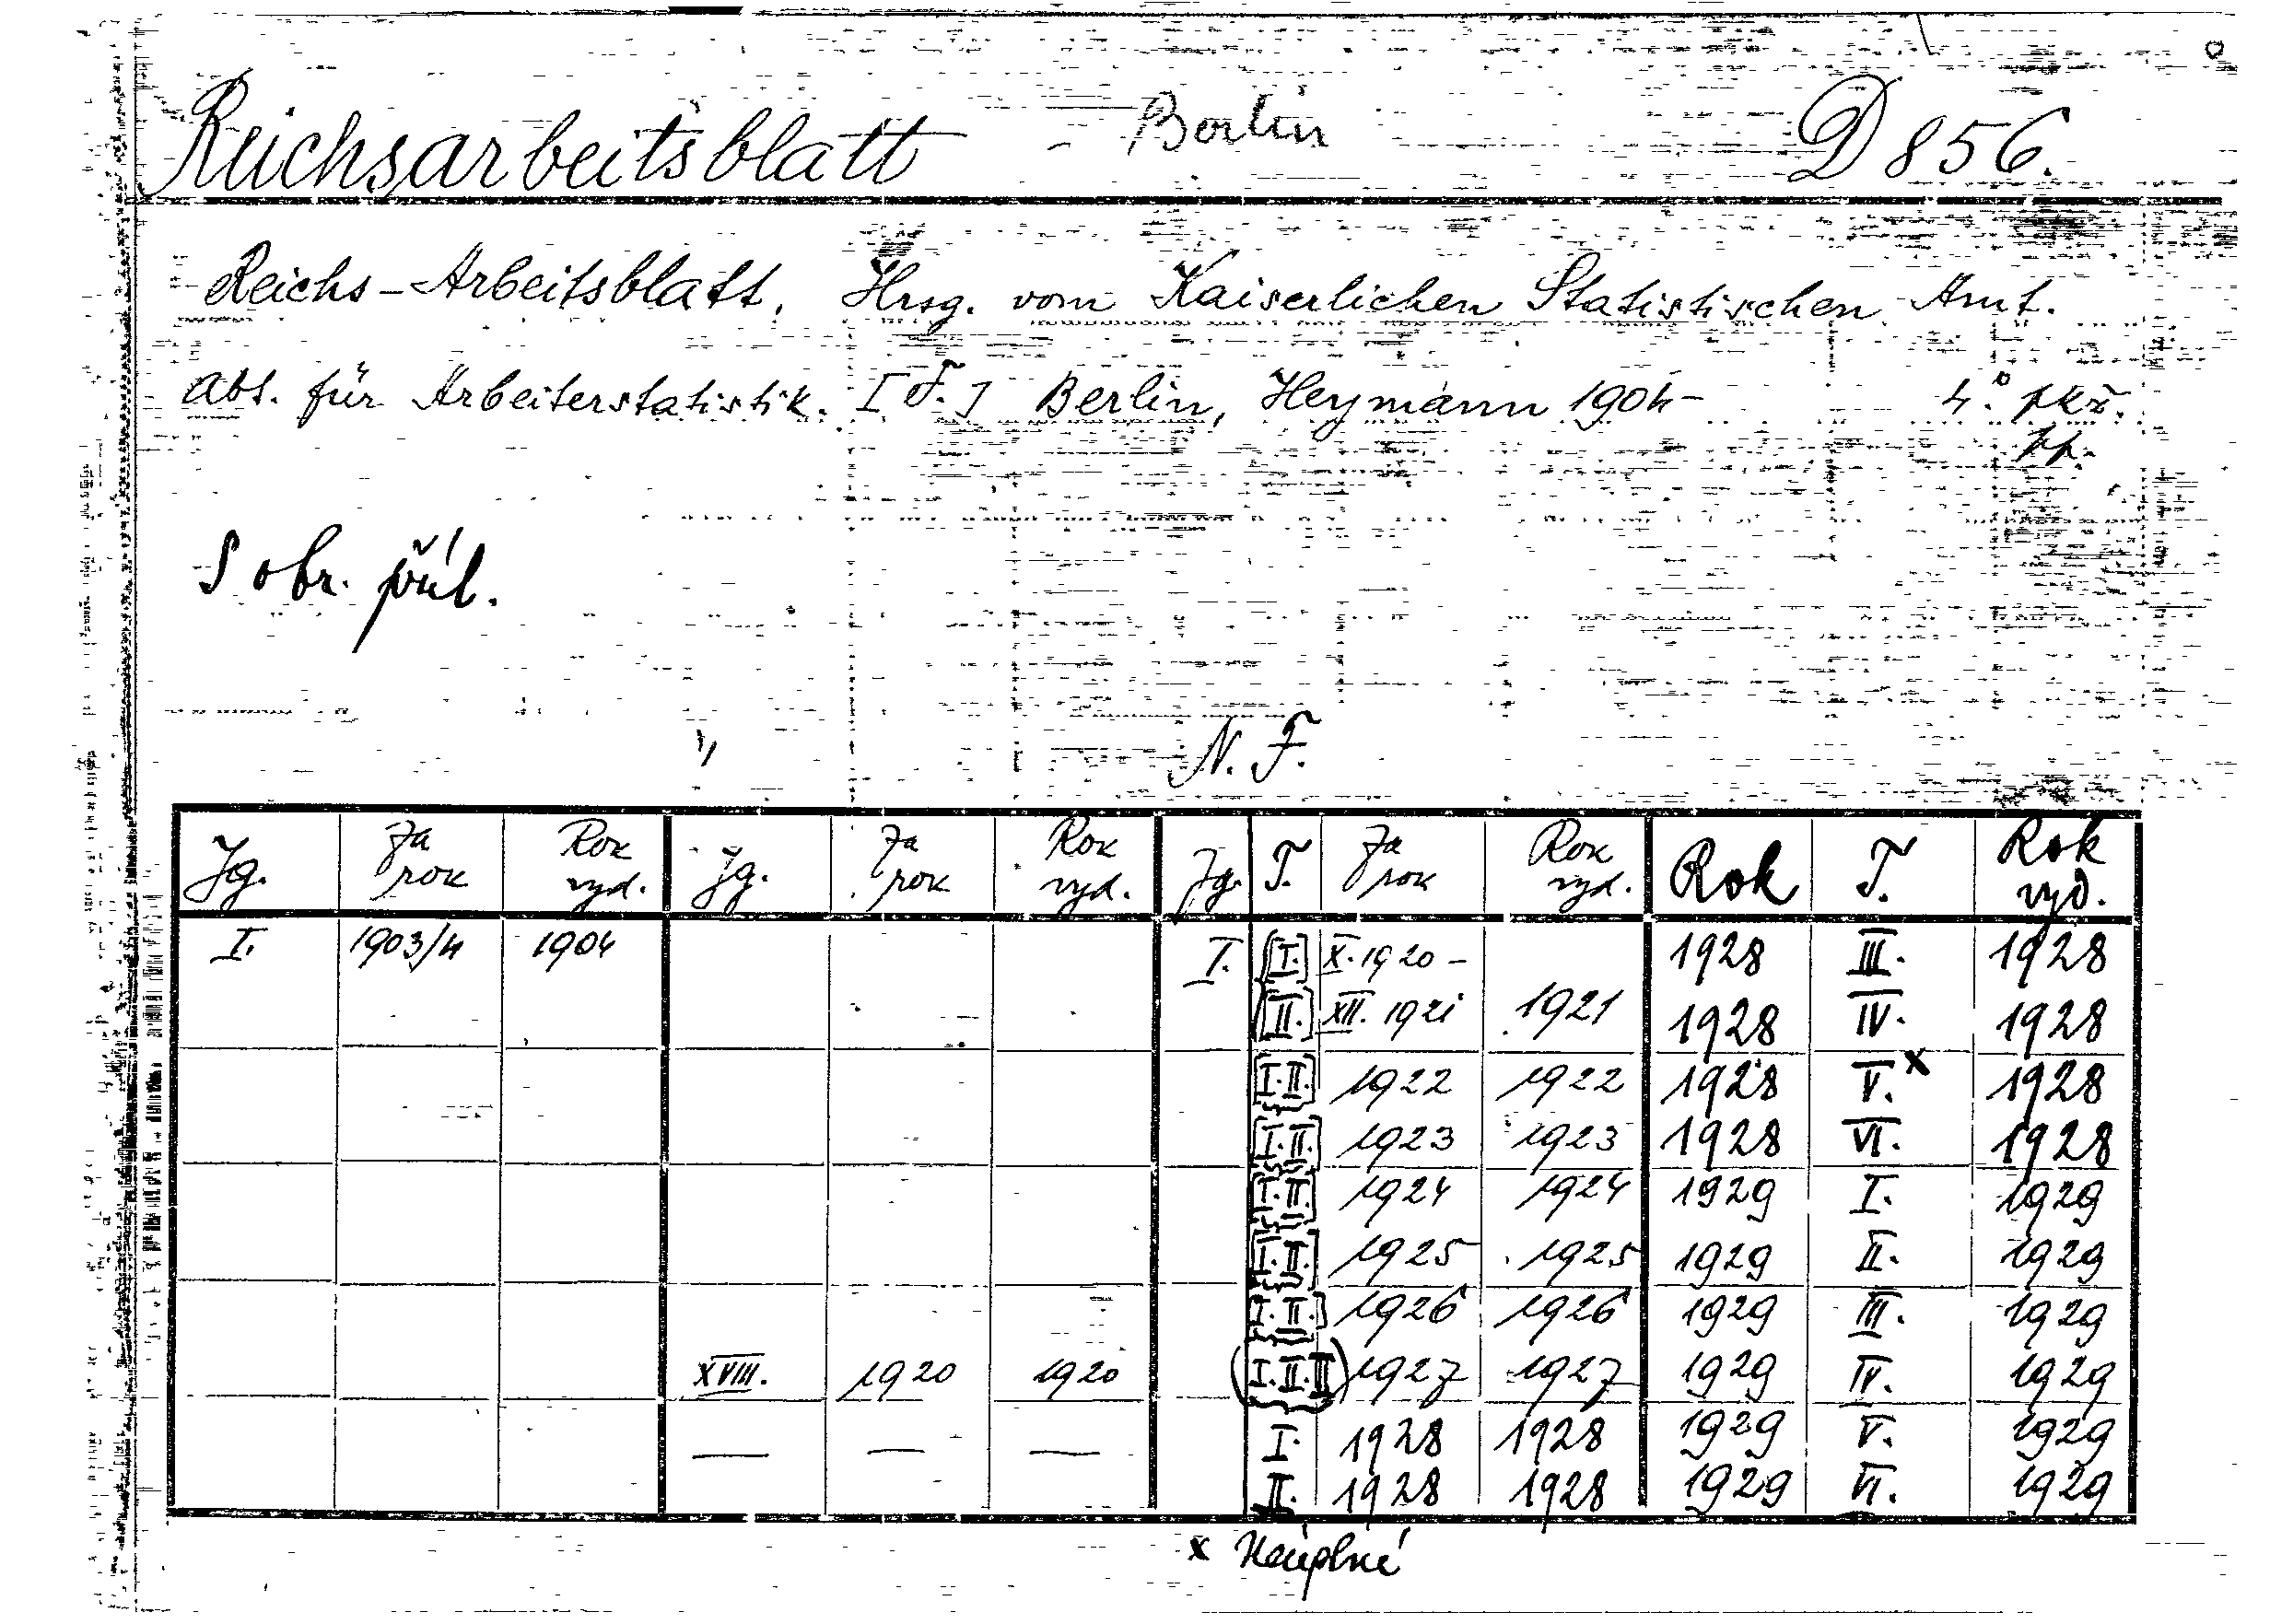 Reichsarbeitsblatt - Berlin D 856.
Reichs-Arbeitsblatt. Hrsg. vom Kaiserlichen Statistischen Amt.
Abt. für Arbeiterstatistik. [F.] Berlin, Heymann 1904- 4°
S obr. příl.
N. F.
Jg. Za rok Rok vyd. Jg. Za rok Rok vyd. Jg. T. Za rok Rok vyd. Rok T. Rok vyd.
I. 1903/4 1904 I. [I.] X. 1920- 1928 III. 1928
[II.] XII. 1921 1921 1928 IV. 1928
[I.II.] 1922 1922 1928 V. x 1928
[I.II.] 1923 1923 1928 VI. 1928
[I.II.] 1924 1924 1929 I. 1929
[I.II.] 1925 1925 1929 II. 1929
[I.II.] 1926 1926 1929 III. 1929
XVIII. 1920 1920 (I.II.III) 1927 1927 1929 IV. 1929
— — — I. 1928 1928 1929 V. 1929
II. 1928 1928 1929 VI. 1929
x Neúplné